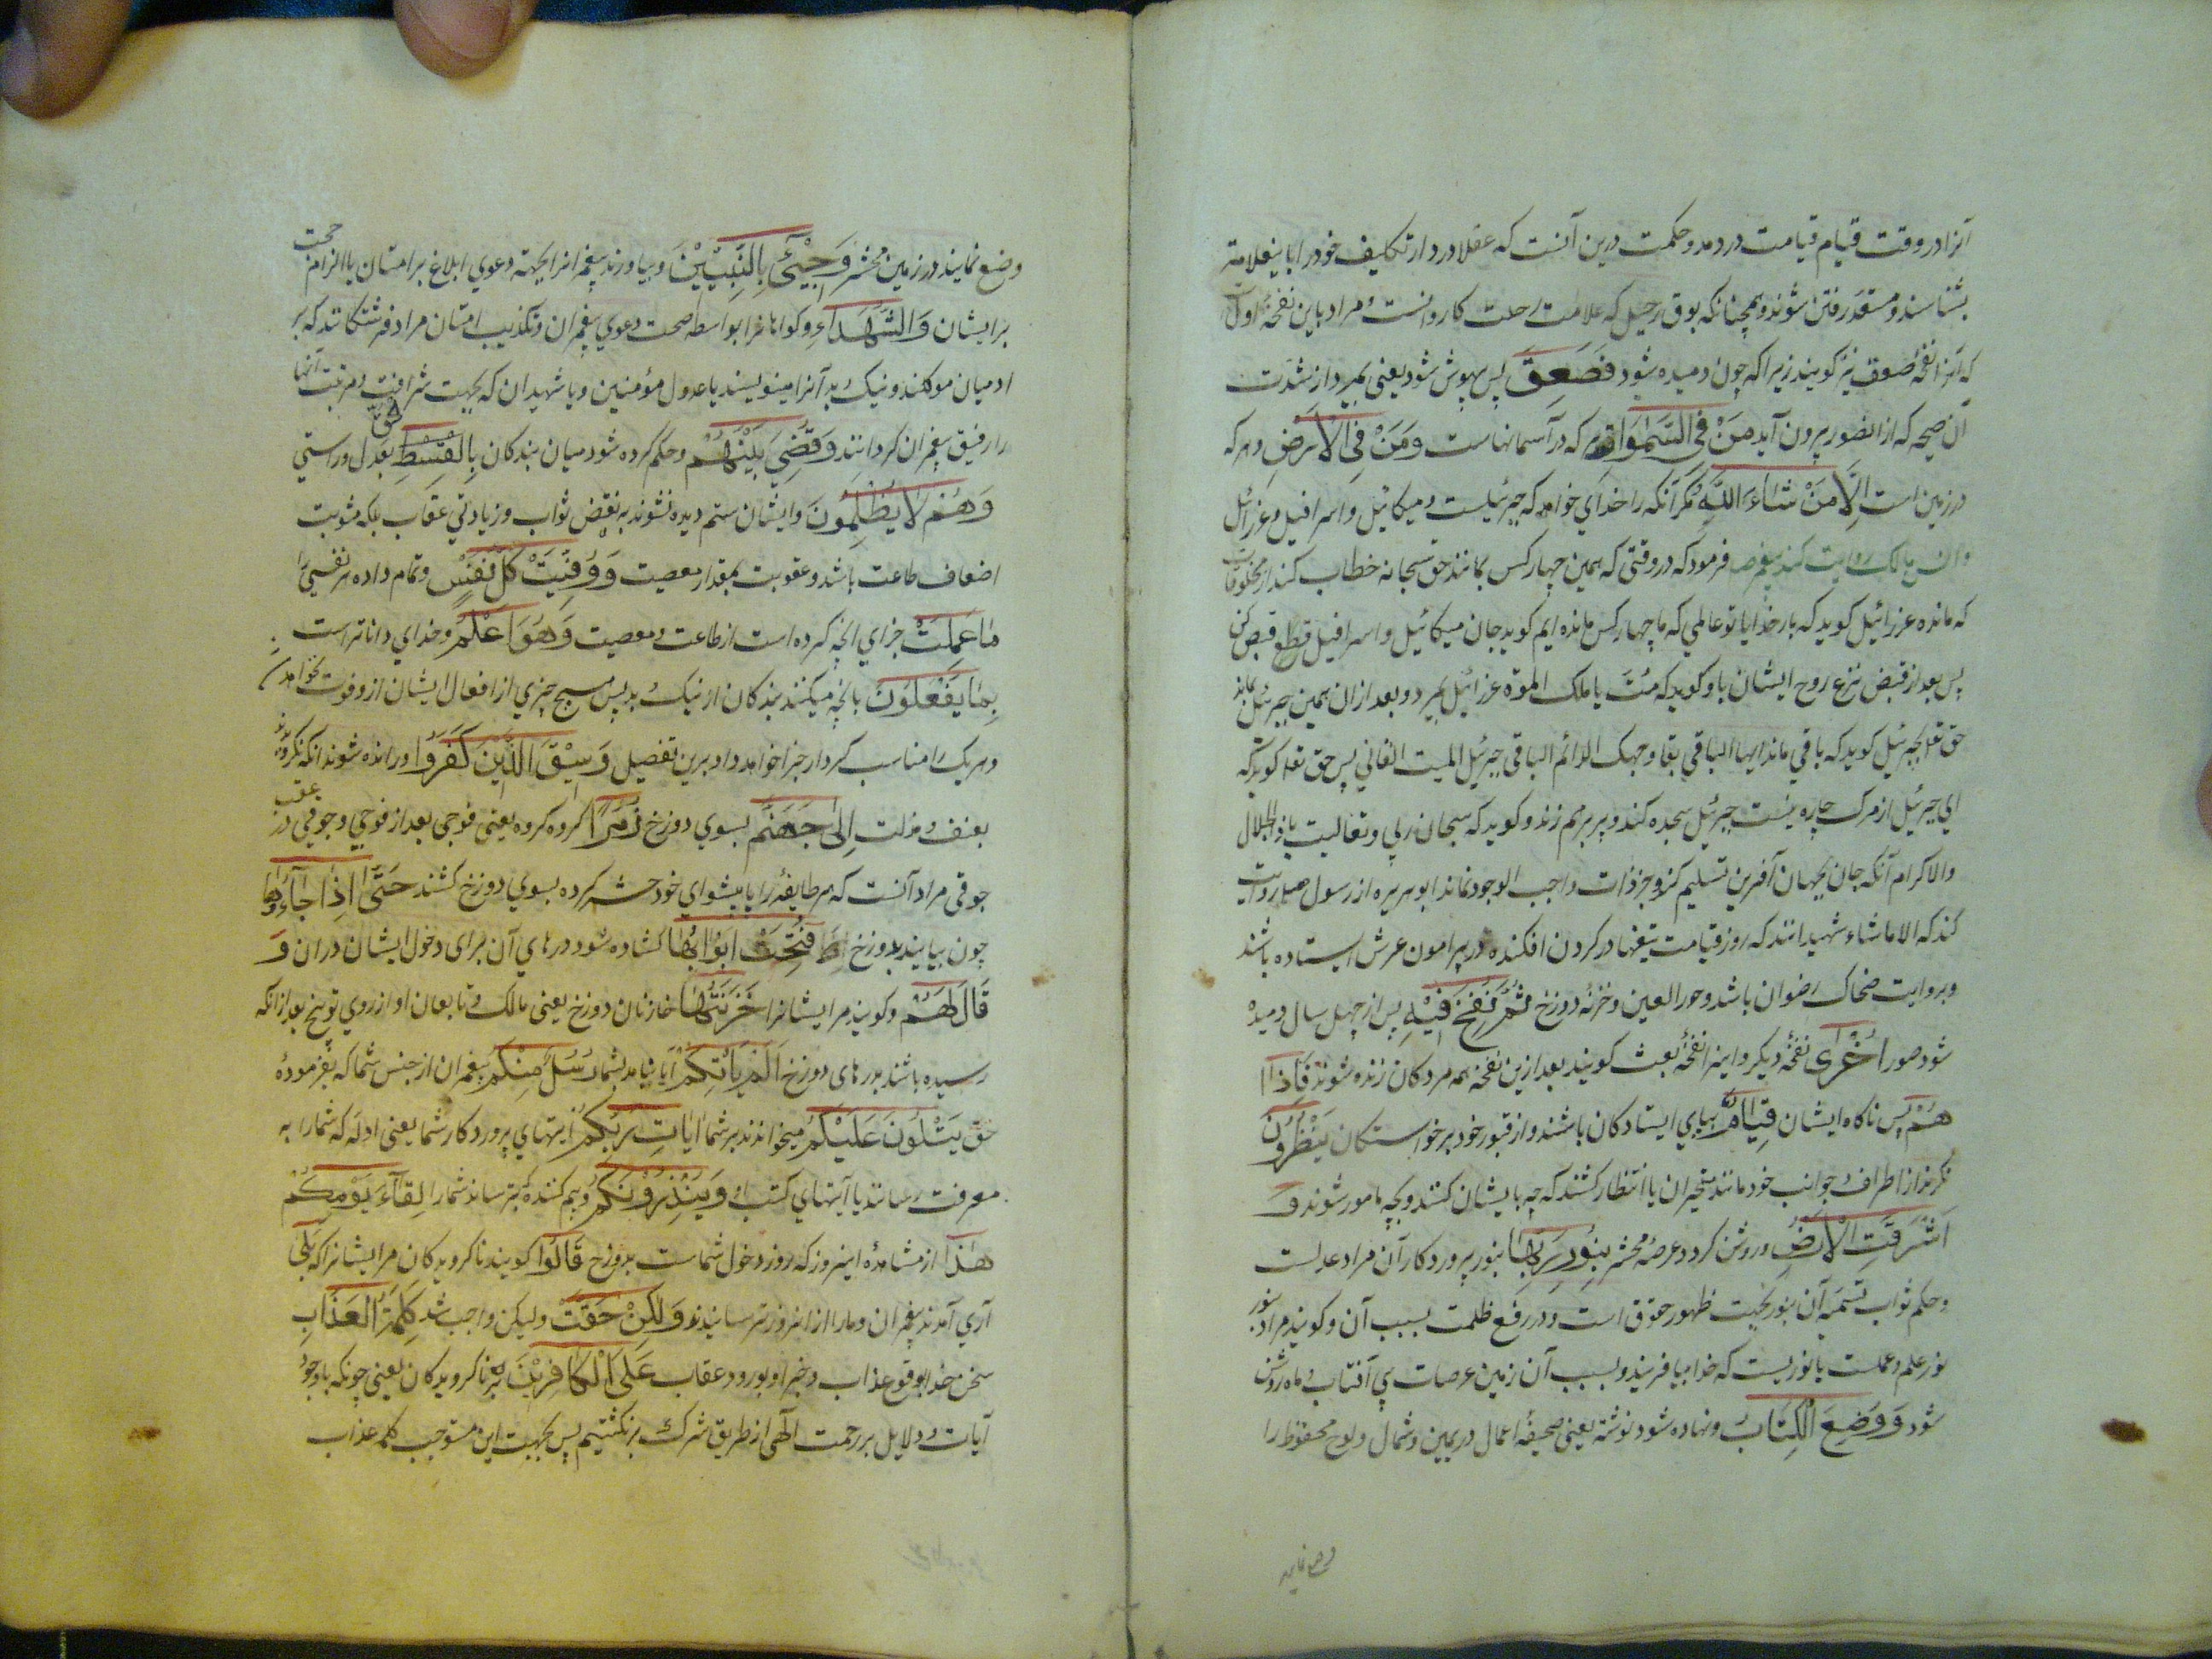 آنرا در وقت قیام قیامت در دمد و حکمت درین آنست که عقلا در دار تکلیف خود را باینعلامة
بشناسند و مستعد رفتن شوند و همچنانکه بوق رحیل که علامت رحلت کاروانست و مراد باین نفخهٔ اول
که آنرا نفخهٔ صعق نیز کویند زیرا که چون دمیده شود فَصَعِقَ پس بیهوش شود یعنی بمیرد از شدت
آن صیحه که از انصور بیرون آید مَنْ فِی السَّمٰوَاتِ هر که در آسمانهاست وَمَنْ فِی الْاَرْضِ و هر که
در زمین است اِلَّا مَنْ شَاءَ اللّٰهُ مکر آنکه را خدای خواهد که جبرئیلست و میکائیل و اسرافیل و عزرائیل
و انس مالک روایت کند پیغمبر ص فرمود که در وقتی که همین چهار کس بمانند حق سبحانه خطاب کند از مخلوقات
که مانده عزرائیل کوید که بار خدایا تو عالمی که ما چهار کس مانده ایم کوید جان میکائیل و اسرافیل قبض کن
پس بعد از قبض نزع روح ایشان باو کوید که مُتْ یا ملک الموة عزرائیل بمیرد و بعد از ان همین جبرئیل بماند
حق تعا بجبرئیل کوید که باقی ماند ایها الباقی بقا وجهک الدائم الباقی جبرئیل المیت الفانی پس حق تعا کوید که
ای جبرئیل از مرک چاره نیست جبرئیل سجده کند و پر بر هم زند و کوید که سبحان ربی و تعالیت یا ذا الجلال
والاکرام آنکه جان بجهان آفرین تسلیم کند و جز ذات واجب الوجود نماند ابو هریره از رسول صلعم روایت
کند که الا ماشاء شهیدانند که روز قیامت تیغها در کردن افکنده در پیرامون عرش ایستاده باشند
و بروایت ضحاک رضوان باشد و حور العین و خزنهٔ دوزخ ثُمَّ نُفِخَ فِیْهِ پس از چهل سال دمیده
شود صور اُخْرٰی نفخهٔ دیکر و اینرا نفخهٔ بعث کویند بعد ازین نفخه همه مردکان زنده شوند فَاِذَا
هُمْ پس ناکاه ایشان قِیَامٌ بپای ایستادکان باشند و از قبور خود برخواستکان یَنْظُرُوْنَ
نکرند از اطراف و جوانب خود مانند متحیران یا انتظار کشند که چه بایشان کنند و بچه مامور شوند وَ
اَشْرَقَتِ الْاَرْضُ و روشن کردد عرصهٔ محشر بِنُوْرِ رَبِّهَا بنور پروردکار آن مراد عدلست
و حکم ثواب تسمیهٔ آن بنور بجهت ظهور حقوق است و در رفع ظلمت بسبب آن و کویند مراد بنور
نور علم و عملست یا نوریست که خدا بیافریند و بسبب آن زمین عرصات بی آفتاب و ماه روشن
شود وَوُضِعَ الْکِتَابُ و نهاده شود نوشته یعنی صحیفهٔ اعمال در یمین و شمال و لوح محفوظ را
وضع نمایند
وضع نمایند در زمین محشر وَجِیْئَ بِالنَّبِیّیْنَ و بیاورند پیغمبرانرا بجهة دعوی ابلاغ بر امتان یا الزام حجت
بر ایشان وَالشُّهَدَاءِ و کواهانرا بواسطه صحت دعوی پیغمبران و تکذیب امتان مراد فرشتکانند که بر
ادمیان موکلند و نیک و بد آنرا مینویسند یا عدول مؤمنین و یا شهیدان که بجهت شرافت و مرتبت آنها
را رفیق پیغمبران کردانند وَقُضِیَ بَیْنَهُمْ و حکم کرده شود میان بندکان بِالْقِسْطِ بعدل و راستی
وَهُمْ لَا یُظْلَمُونَ و ایشان ستم دیده نشوند به نقص ثواب و زیادتی عقاب بلکه مثوبت
اضعاف طاعت باشد و عقوبت بمقدار معصیت وَوُفِّیَتْ کُلُّ نَفْسٍ و تمام داده هر نفسی را
مَا عَمِلَتْ جزای انچه کرده است از طاعت و معصیت وَهُوَ اَعْلَمُ و خدای داناتر است
بِمَا یَفْعَلُوْنَ بانچه میکنند بندکان از نیک و بد پس هیچ چیزی از افعال ایشان ازو فوت نخواهد شد
و هر یک را مناسب کردار جزا خواهد داد برین تفصیل وَسِیْقَ الَّذِیْنَ کَفَرُوْا و رانده شوند آنکه نکرویدند
بعنف و مذلت اِلٰی جَهَنَّمَ بسوی دوزخ زُمَرًا کروه کروه یعنی فوجی بعد از فوجی و جوقی در عقب
جوقی مراد آنست که هر طایفه را با پیشوای خود حشر کرده بسوی دوزخ کشند حَتّٰی اِذَا جَآءُوْهَا
چون بیایند بدوزخ فُتِحَتْ اَبْوَابُهَا کشاده شود درهای آن برای دخول ایشان در ان وَ
قَالَ لَهُمْ و کویند مر ایشانرا خَزَنَتُهَا خازنان دوزخ یعنی مالک و تابعان او از روی توبیخ بعد از انکه
رسیده باشند بدرهای دوزخ اَلَمْ یَأْتِکُمْ آیا نیامد بشما رُسُلٌ مِنْکُمْ پیغمبران از جنس شما که بفرمودهٔ
حق یَتْلُوْنَ عَلَیْکُمْ میخواندند بر شما اٰیَاتِ رَبِّکُمْ آیتهای پروردکار شما یعنی ادله که شما را به
معرفت رسانند یا آیتهای کتب او وَیُنْذِرُوْنَکُمْ و بیم کننده و بترسانند شما را لِقَآءَ یَوْمِکُمْ
هٰذَا از مشاهدهٔ اینروز که روز دخول شماست بدوزخ قَالُوْا کویند ناکرویدکان مر ایشانرا که بَلٰی
آری آمدند پیغمبران و ما را از انروز ترسانیدند وَلٰکِنْ حَقَّتْ و لیکن واجب شد کَلِمَةُ الْعَذَابِ
سخن خدا بوقوع عذاب و خبر او بورود عقاب عَلَی الْکَافِرِیْنَ بر ناکرویدکان یعنی چونکه باوجود
آیات و دلایل بر رحمت الهی از طریق شرک برنکشتیم پس بجهت این مستوجب کلمه عذاب